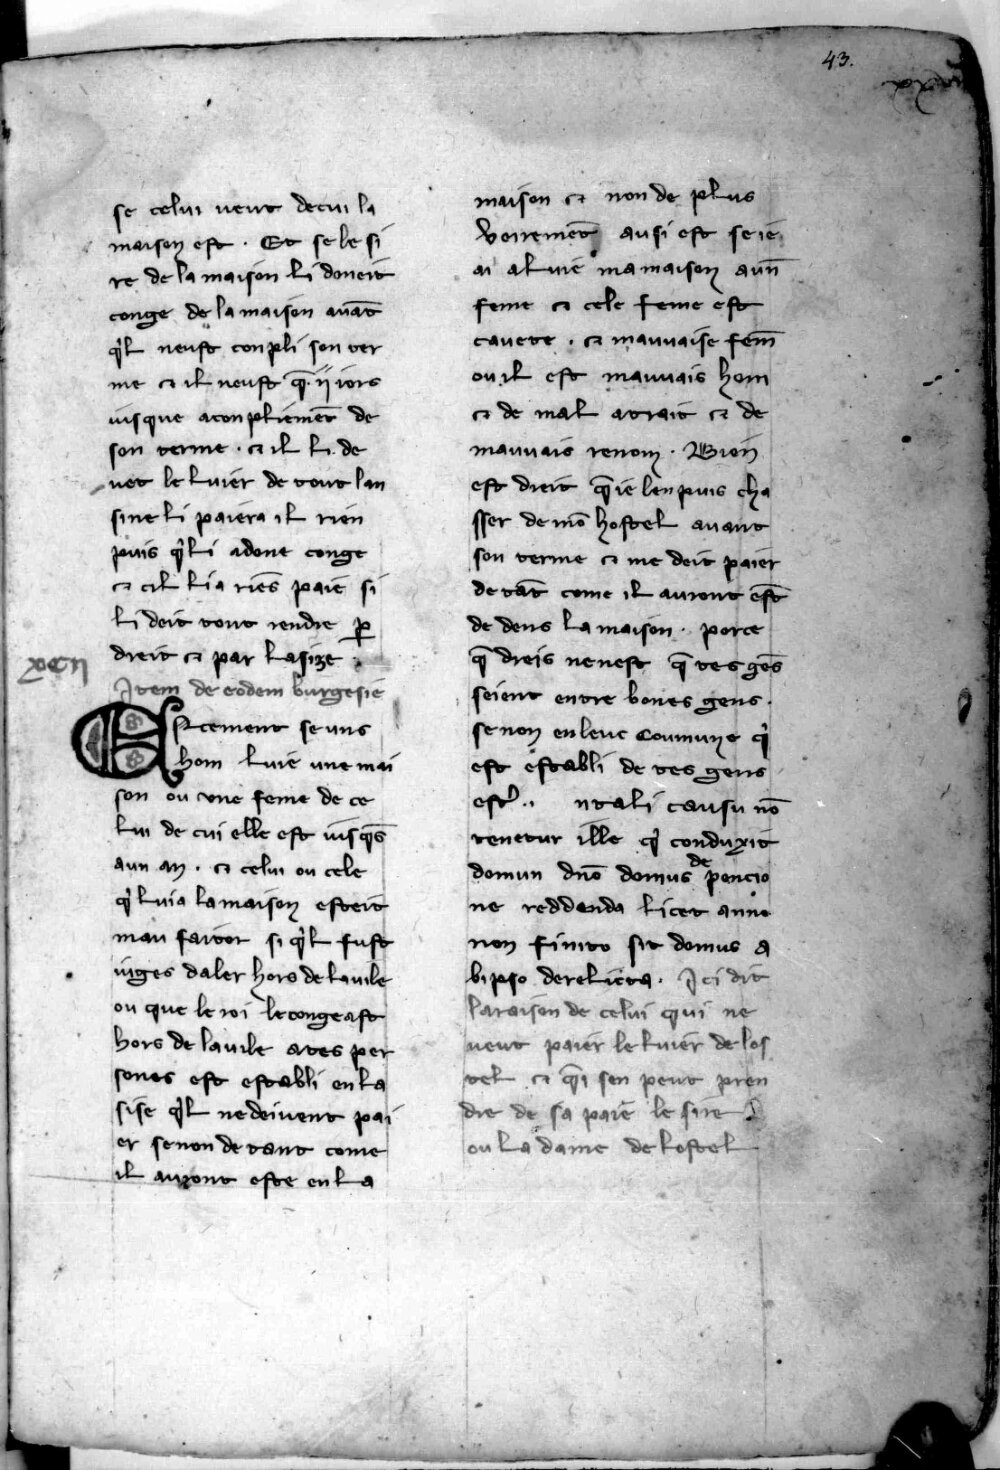 43.
se celui veut de cui la
maison est . Et se le si
re de la maison li doneit
conge de la maison auāt
q'l neust conpli son ter
me ⁊ il neust q̄ .ii. iors
iusque aconpliemēt de
son terme . ⁊ il li de
uet le luier de tout lan
si ne li paiera il rien
puis q'l li a done conge
⁊ cil li a riēs paie si
li deit tout rendre ꝑ
dreit ⁊ par lasize .
xcii
Item de eodem burgesie
Encement se uns
hom luie une mai
son ou une feme de ce
lui de cui elle est iusq̄s
a un an . ⁊ celui ou cele
q' luia la maison esteit
mau faitor si q'l fust
iuges daler hors de la uile
ou que le roi le congeast
hors de la uile a tes per
sones est establi en la
sise q'l ne deiuent pai
er se non de tant come
il auront este en la
maison ⁊ non de plus
Voiremēt ausi est se ie
ai aluie ma maison a un̄
feme ⁊ cele feme est
⁊ mauuaise fem̄
ou il est mauuais hom
⁊ de mal atrait ⁊ de
mauuais renom . Bien
est dreit q̄ ie len puis cha
sser de mō hostel auant
son terme ⁊ me deit paier
de tāt come il auront est̄
de dens la maison . porce
q̄ dreis nenest q̄ tes gēs
seient entre bones gens .
se non en leuc Coumune q'
est establi de tes gens
estr' .. n tali causu nō
tenetur ille q' conduxit
domun dn̄o domus de pencio
ne reddenda licet anno
non finito sit domus a
b ipso derelicta . Ici dit
la raison de celui qui ne
ueut paier le luier de los
tel ⁊ q̄i sen peut pren
dre de sa paie le sire
ou la dame de lostel